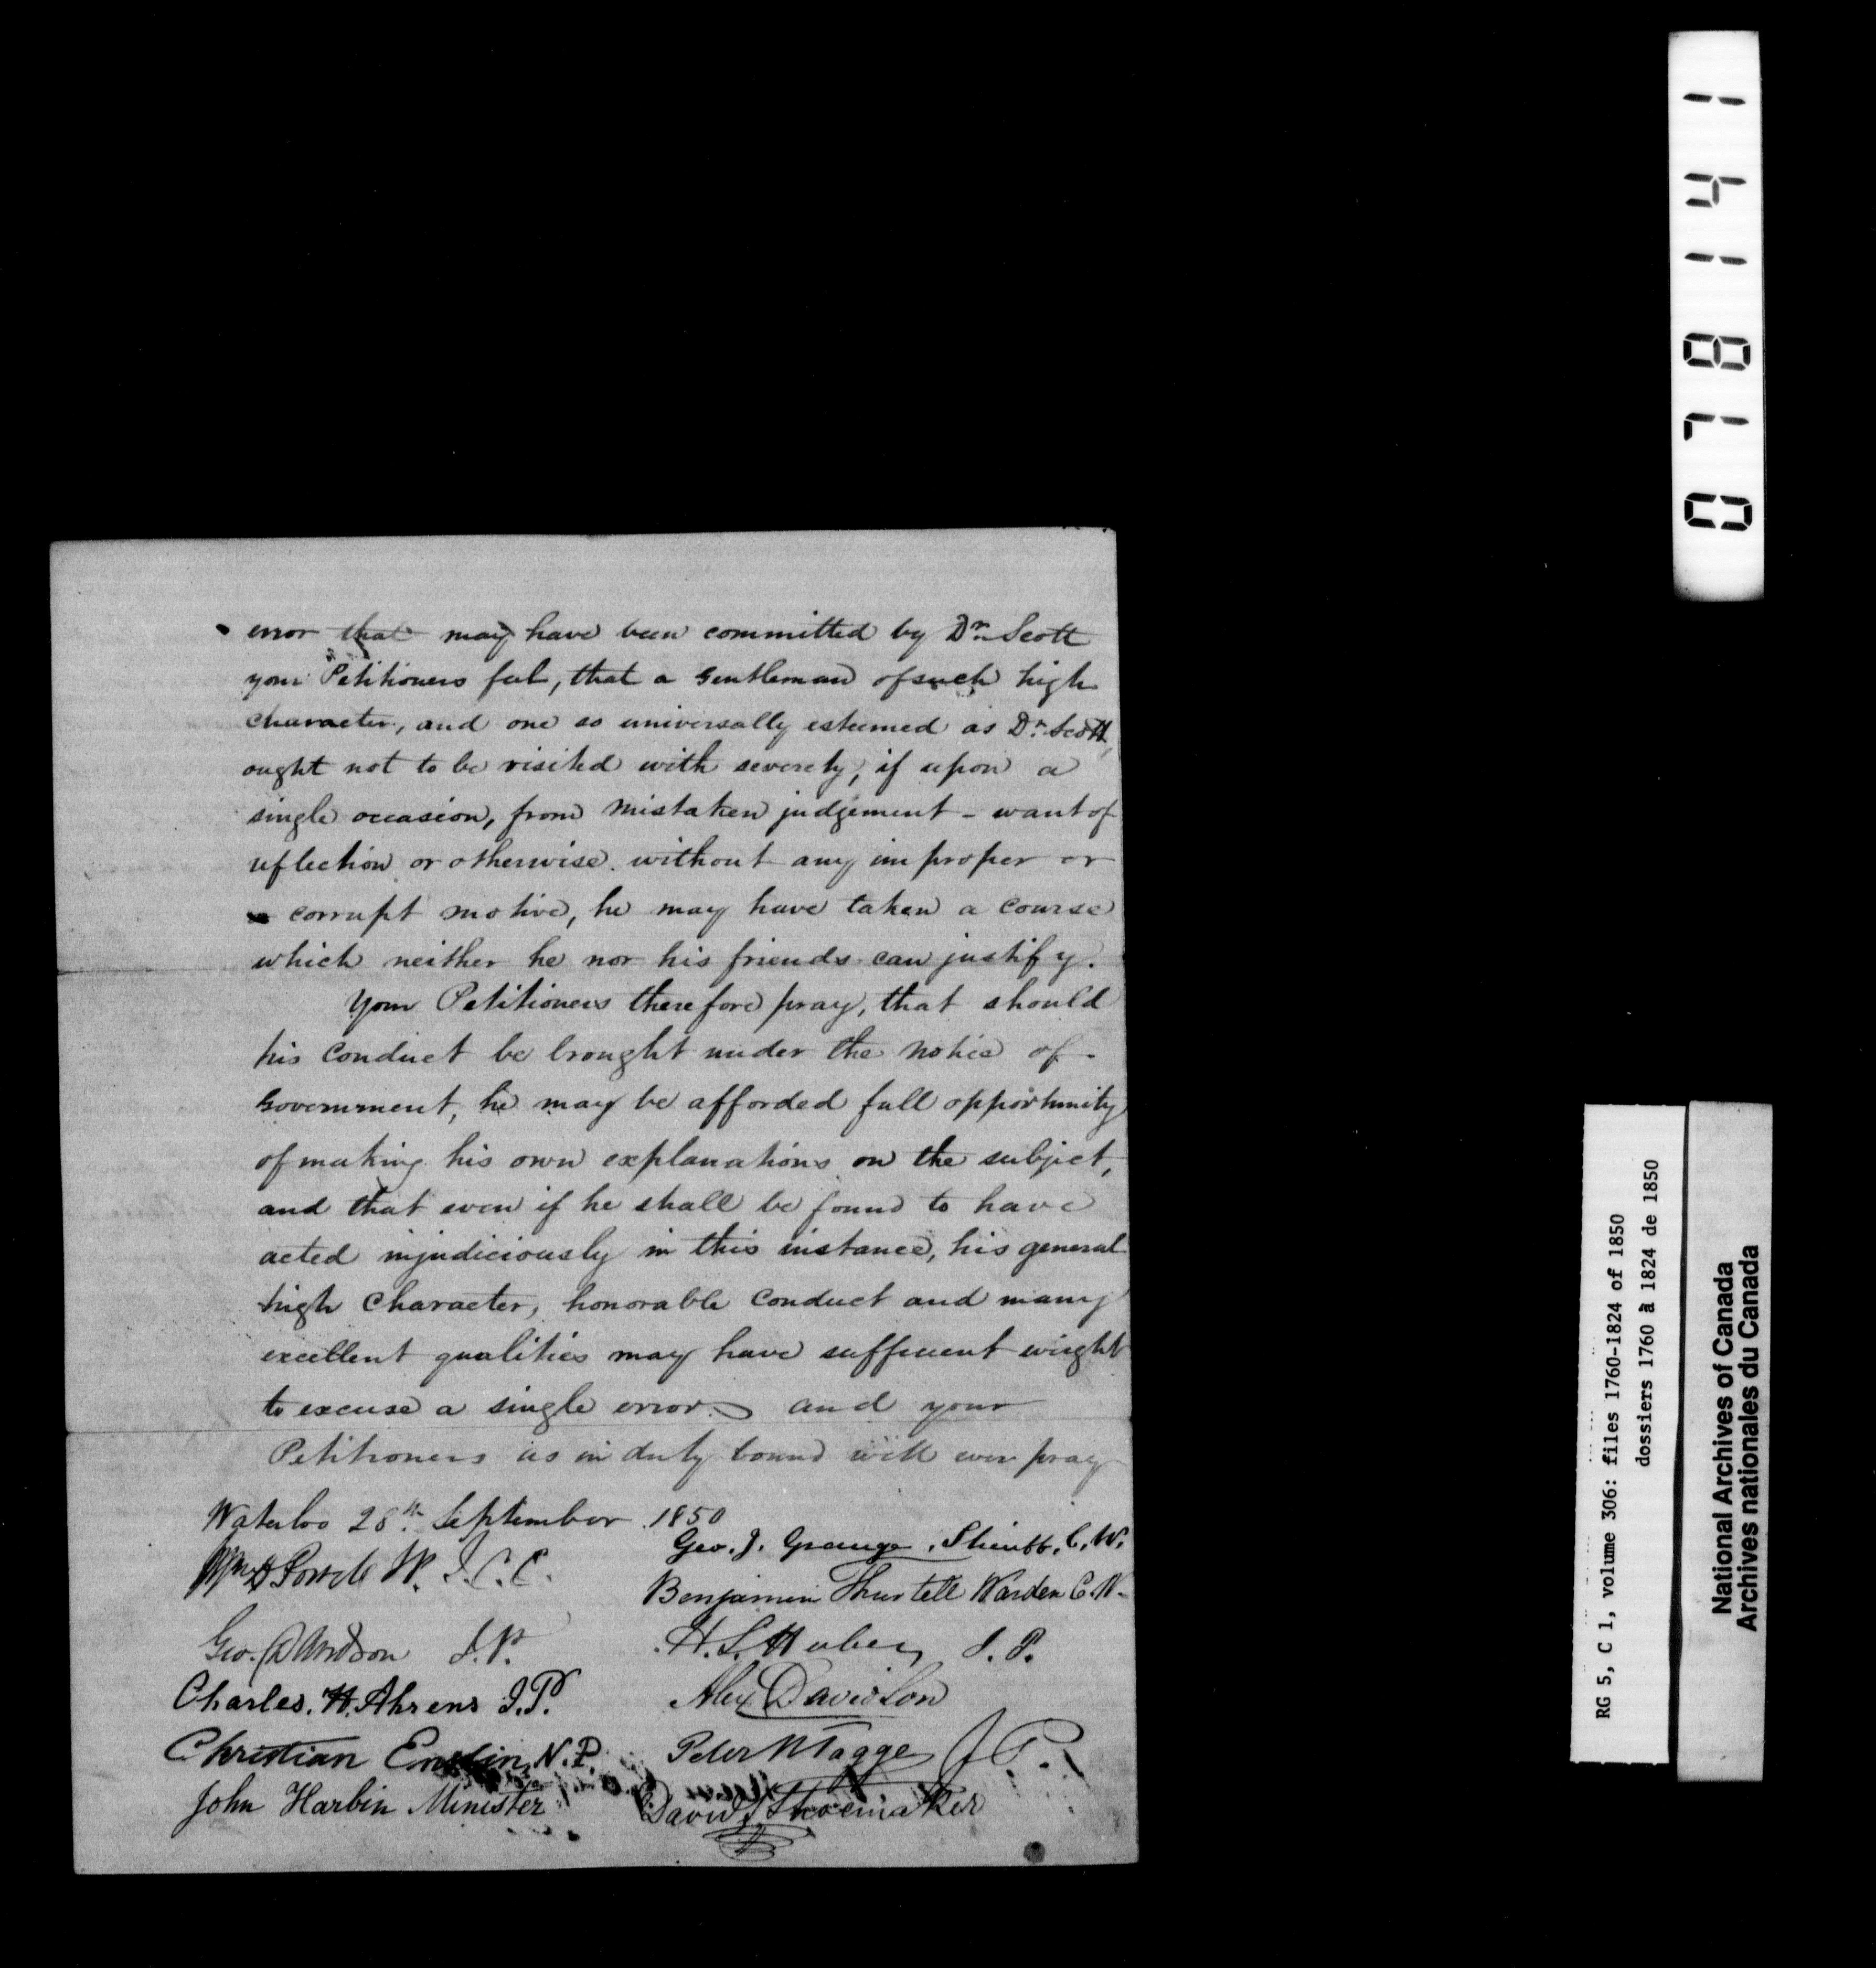 error that may have been committed by Dr. Scott
your Petitioners feel, that a Gentleman of such high
character, and one so universally esteemed as Dr. Scott,
ought not to be visited with severety, if upon a
single occasion, from mistaken judgement - want of
reflection or otherwise. without any improper or
corrupt motive, he may have taken a course
which neither he nor his friends can justify.
Your Petitioners therefore pray, that should
his conduct be brought under the notice of -
Government, he may be afforded full opportunity
of making his own explanations on the subject,
and that even if he shall be found to have
acted injudiciously in this instance, his general
high character, honorable conduct and many
excellent qualities may have sufficient weight
to excuse a single error. and your
Petitioners as in duty bound will ever pray
Waterloo 28th September 1850
Geo. J. Grange, Sheriff, C.W.
J. C. C.
Benjamin Thurtell Warden C.W.
Geo. Davidson J.P.
H. S. Huber J.P.
Charles. H. Ahrens J.P.
Alex Davidson
Christian Enslin, N.P.
Peter N Tagge J P.
John Harbin Minister
David Shoemaker
078141
RG 5, C 1, volume 306: files 1760-1824 of 1850
dossiers 1760 à 1824 de 1850
National Archives of Canada
Archives nationales du Canada